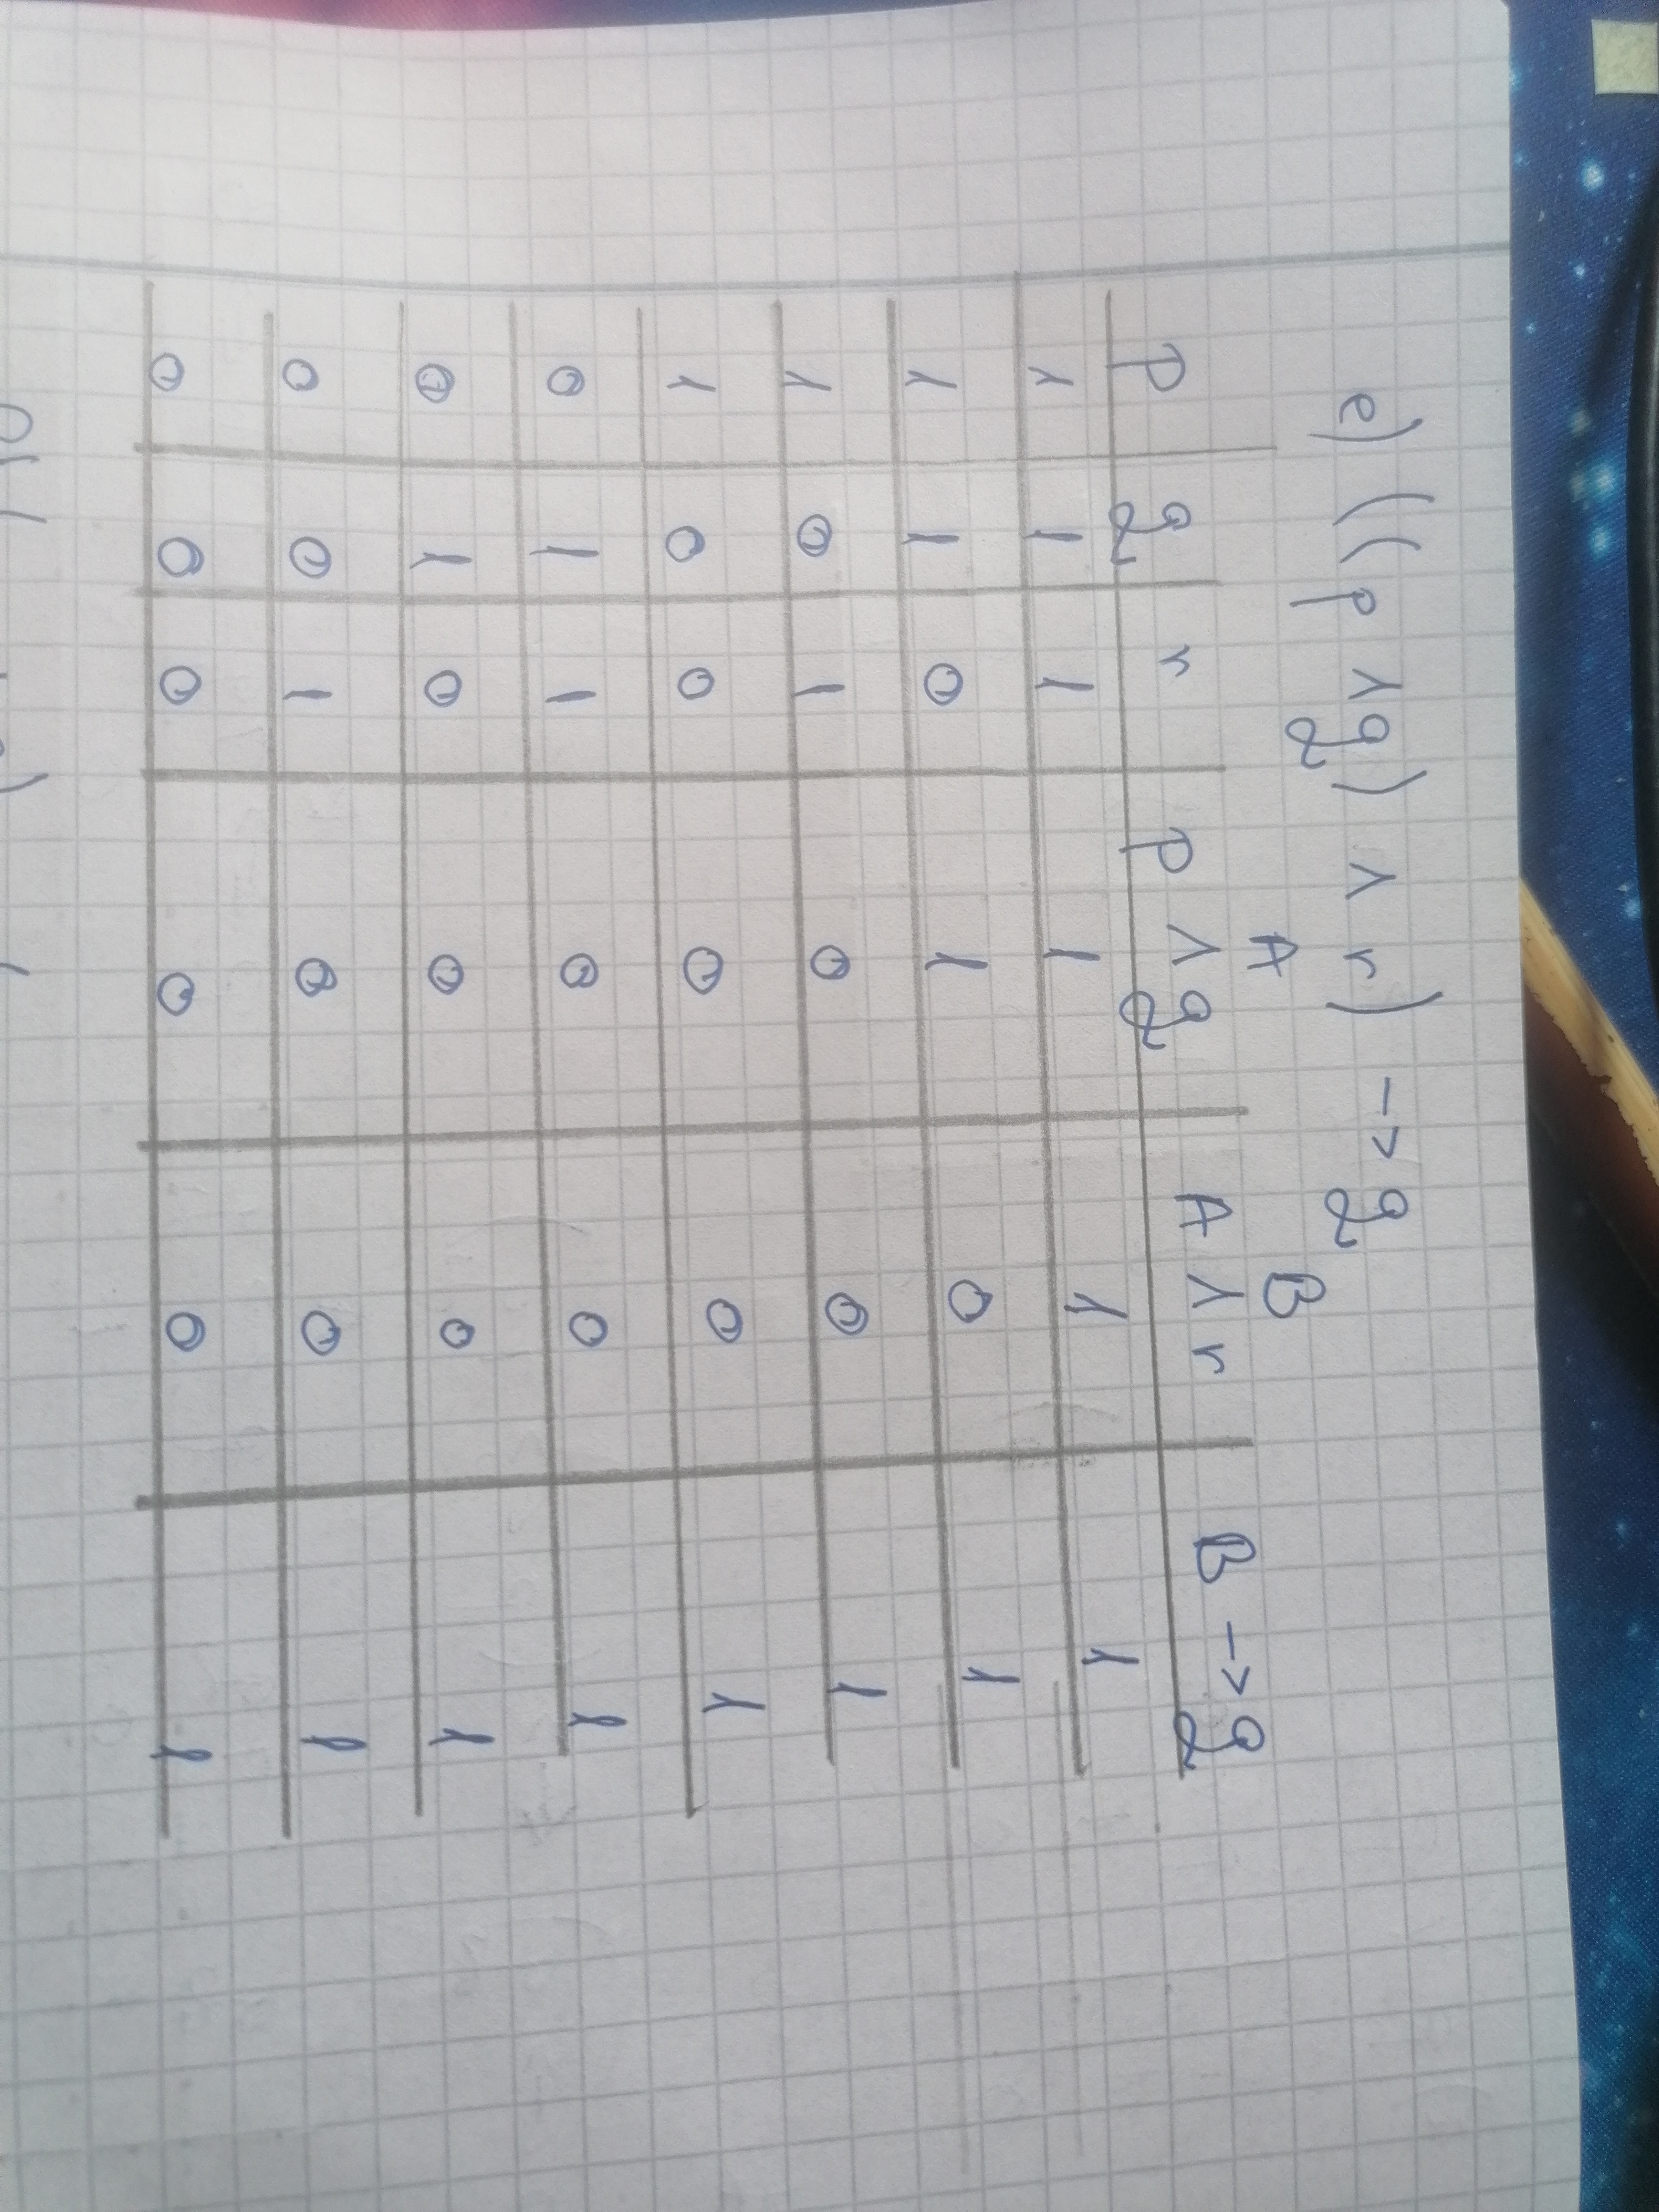 e) ((p ∧ q) ∧ r) -> q
A B
p q r p ∧ q A ∧ r B -> q
1 1 1 1 1 1
1 1 0 1 0 1
1 0 1 0 0 1
1 0 0 0 0 1
0 1 1 0 0 1
0 1 0 0 0 1
0 0 1 0 0 1
0 0 0 0 0 1